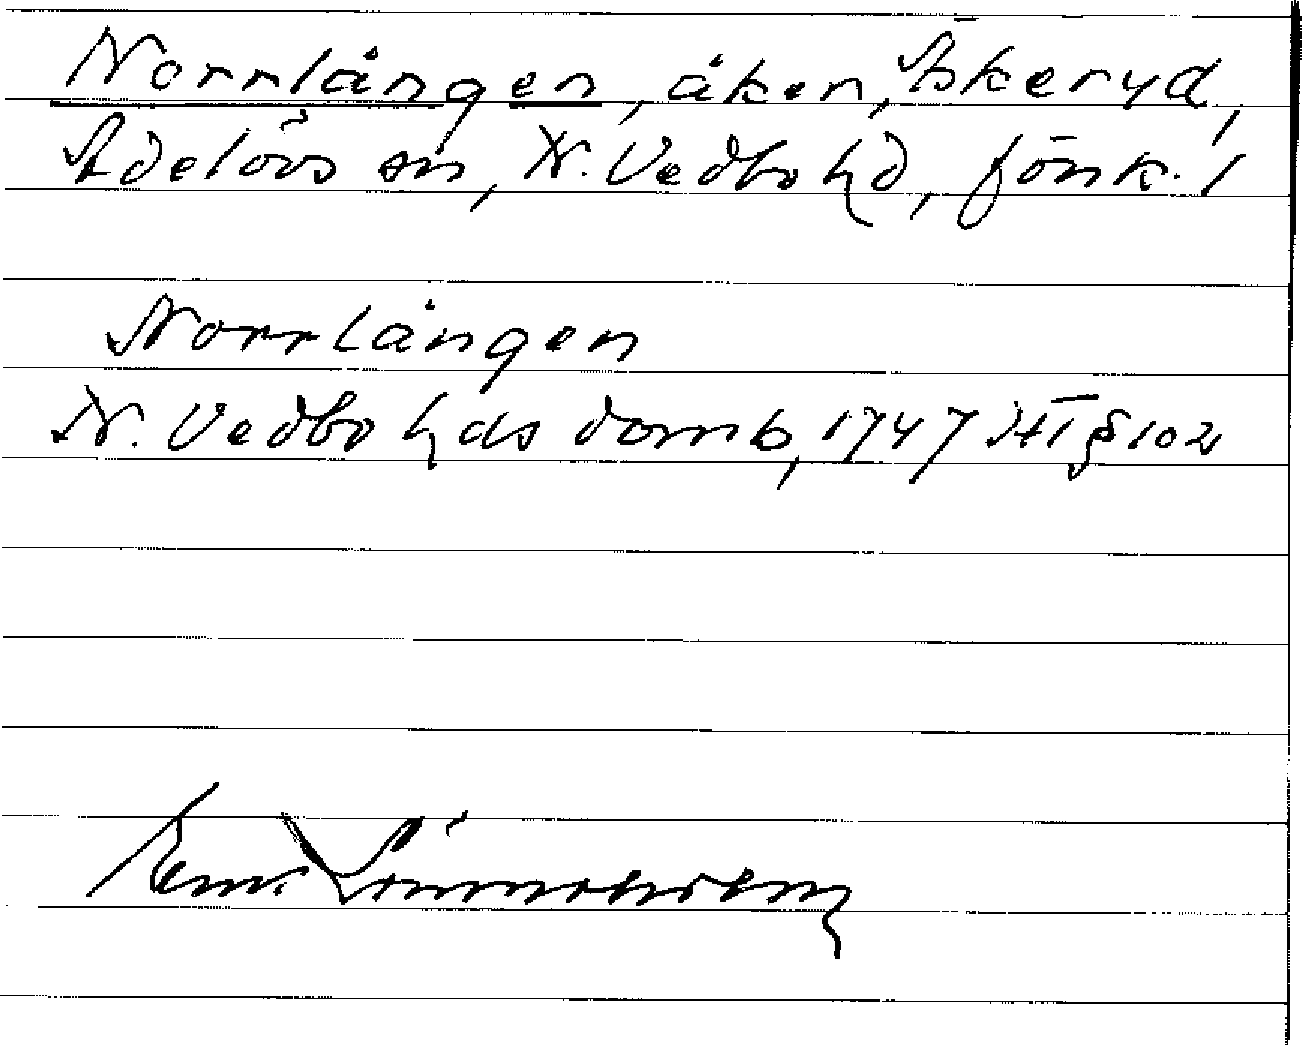 Norrlången, åker, Äskeryd,
Adelövs sn, N. Vedbo hd, Jönk. l
Norrlången
N. Vedbo hds domb, 1747 HT § 102